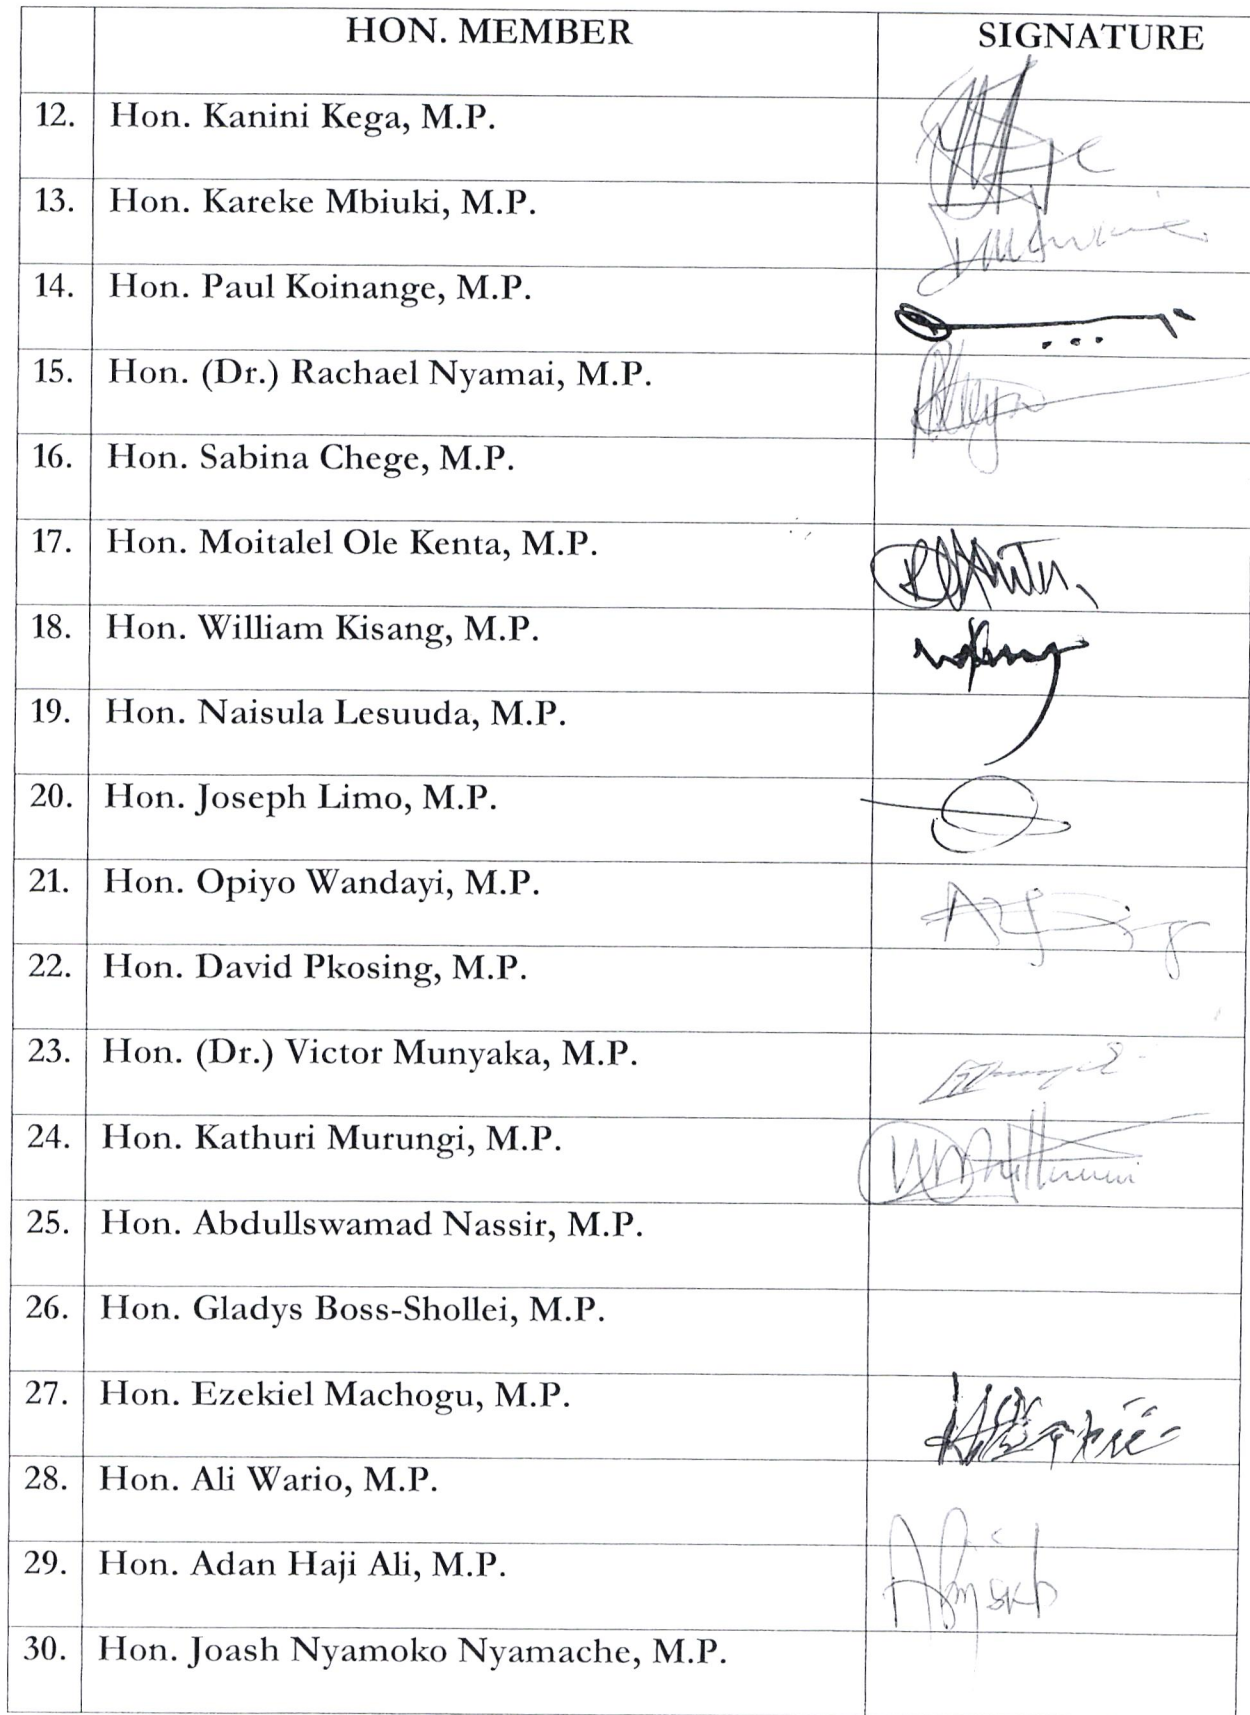 HON. MEMBER SIGNATURE
12. Hon. Kanini Kega, M.P.
13. Hon. Kareke Mbiuki, M.P.
14. Hon. Paul Koinange, M.P.
15. Hon. (Dr.) Rachael Nyamai, M.P.
16. Hon. Sabina Chege, M.P.
17. Hon. Moitalel Ole Kenta, M.P.
18. Hon. William Kisang, M.P.
19. Hon. Naisula Lesuuda, M.P.
20. Hon. Joseph Limo, M.P.
21. Hon. Opiyo Wandayi, M.P.
22. Hon. David Pkosing, M.P.
23. Hon. (Dr.) Victor Munyaka, M.P.
24. Hon. Kathuri Murungi, M.P.
25. Hon. Abdullswamad Nassir, M.P.
26. Hon. Gladys Boss-Shollei, M.P.
27. Hon. Ezekiel Machogu, M.P.
28. Hon. Ali Wario, M.P.
29. Hon. Adan Haji Ali, M.P.
30. Hon. Joash Nyamoko Nyamache, M.P.